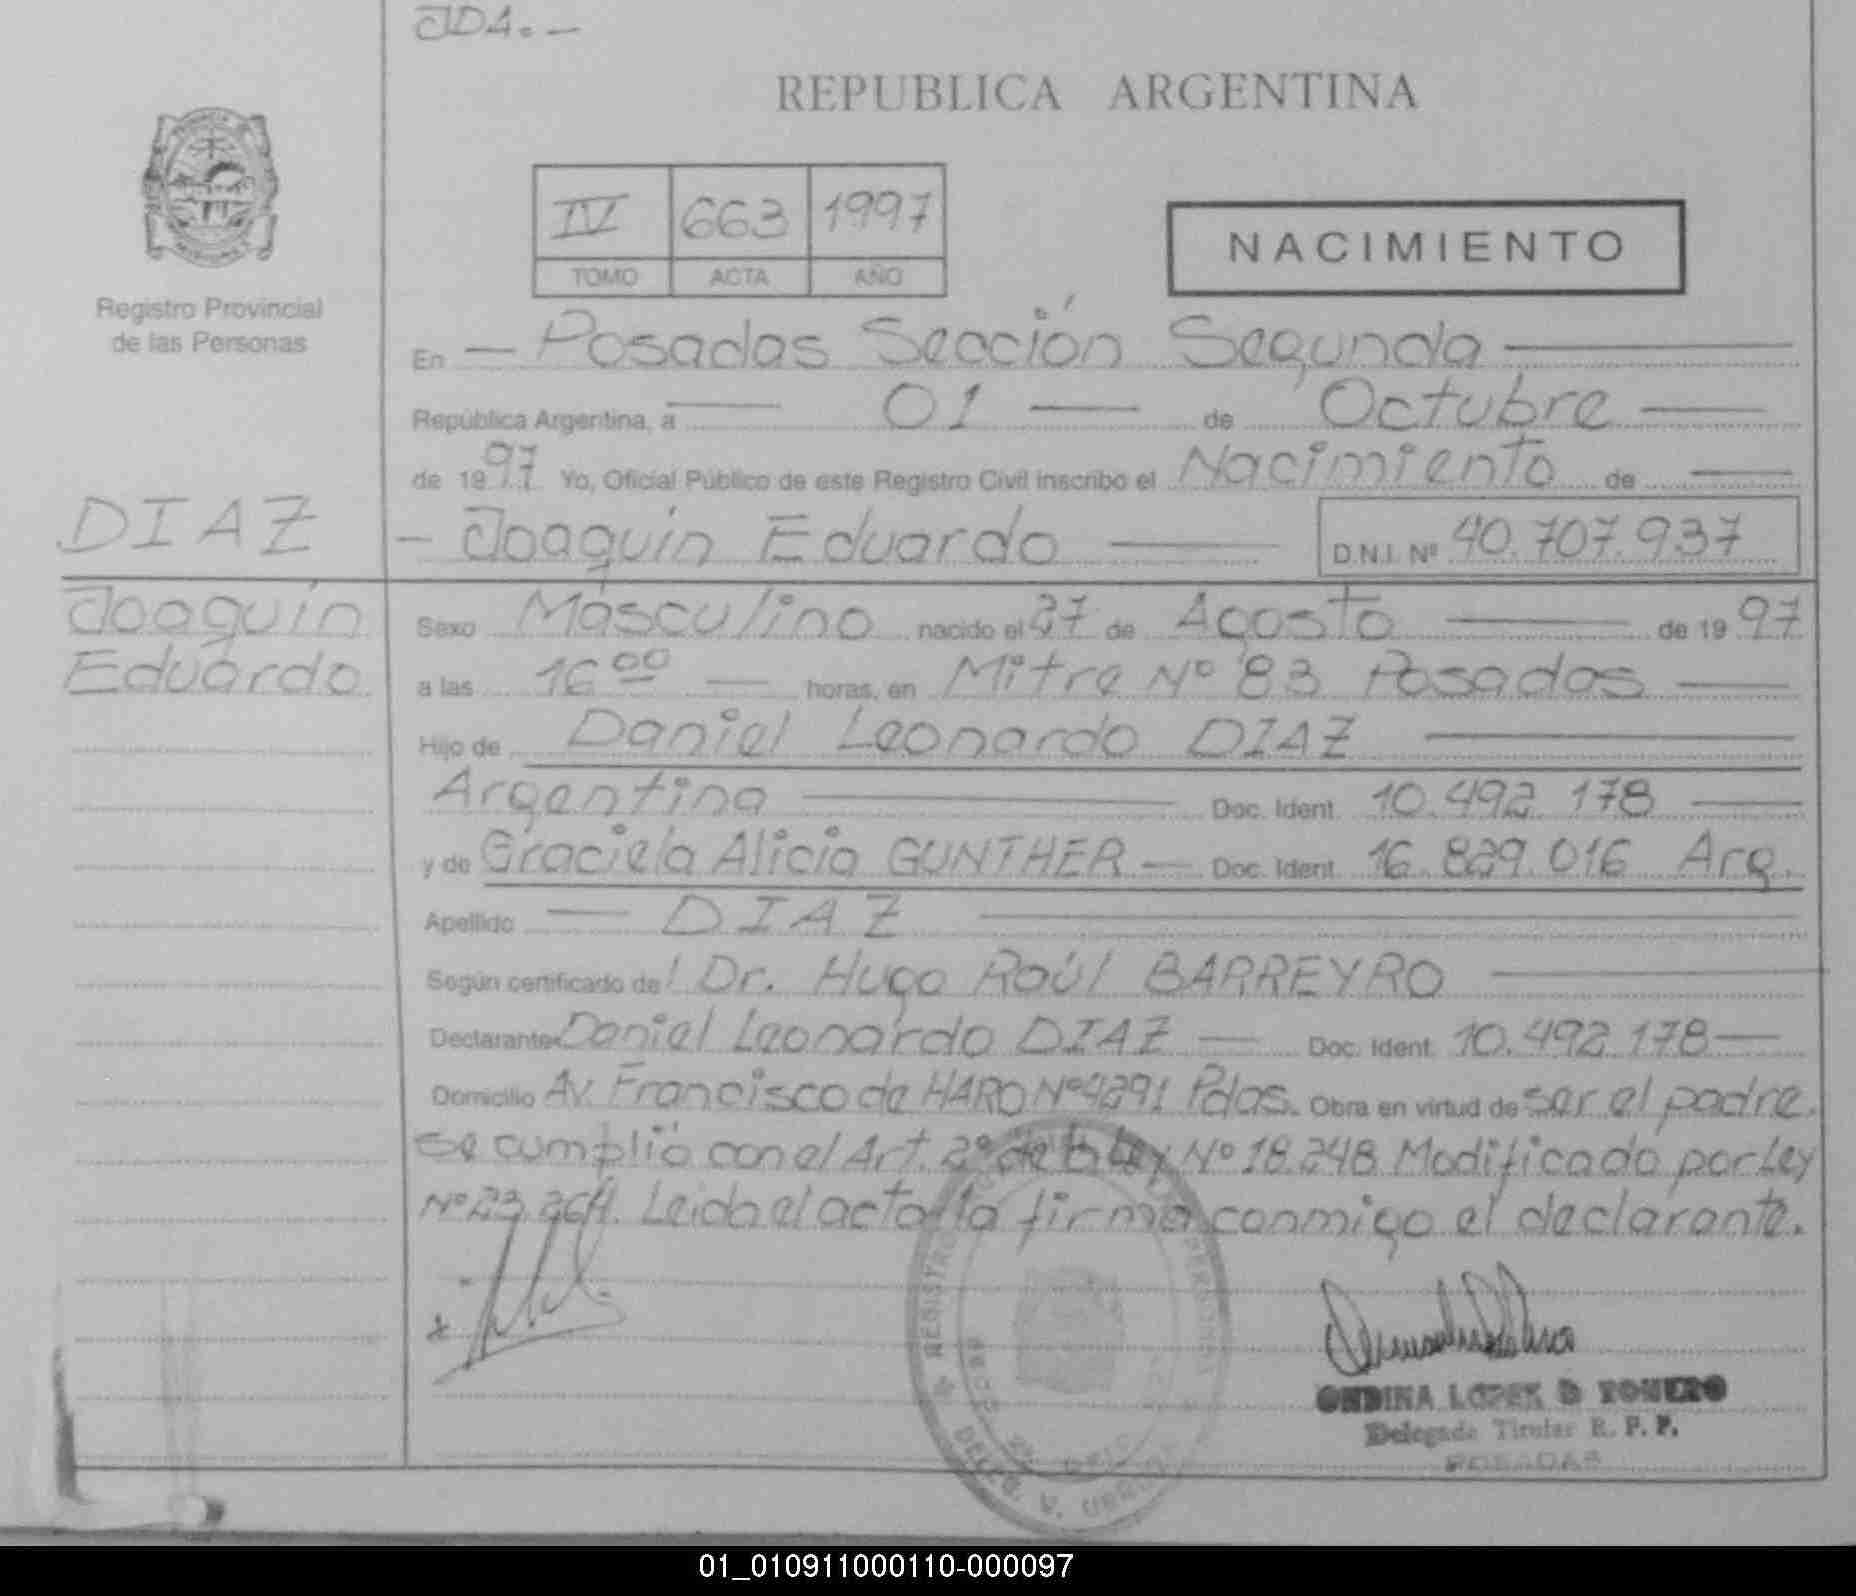 JDA.-
REPUBLICA ARGENTINA
IV 663 1997
TOMO ACTA AÑO
NACIMIENTO
Registro Provincial
de las Personas
En — Posadas Sección Segunda —
República Argentina, a — 01 — de Octubre —
de 1997 Yo, Oficial Público de este Registro Civil inscribo el Nacimiento de —
DIAZ
- Joaquin Eduardo — D.N.I. Nº 40.707.937
Joaquin
Eduardo
Sexo Masculino nacido el 27 de Agosto — de 1997
a las 16 00 — horas, en Mitre Nº 83 Posadas —
Hijo de Daniel Leonardo DIAZ —
Argentina — Doc. Ident. 10.492.178 —
y de Graciela Alicia GUNTHER — Doc. Ident. 16.829.016 Arg.
Apellido — DIAZ —
Según certificado del Dr. Hugo Raúl BARREYRO —
Declarante Daniel Leonardo DIAZ — Doc. Ident. 10.492.178 —
Domicilio Av. Francisco de HARO Nº 4291 Pdas. Obra en virtud de ser el padre.
Se cumplió con el Art. 2º de la Ley Nº 18.248 Modificado por Ley
Nº 23.264. Leida el acta la firma conmigo el declarante.
ONDINA LOPEZ D ROMERO
Delegada Titular R. P. P.
POSADAS
01_010911000110-000097